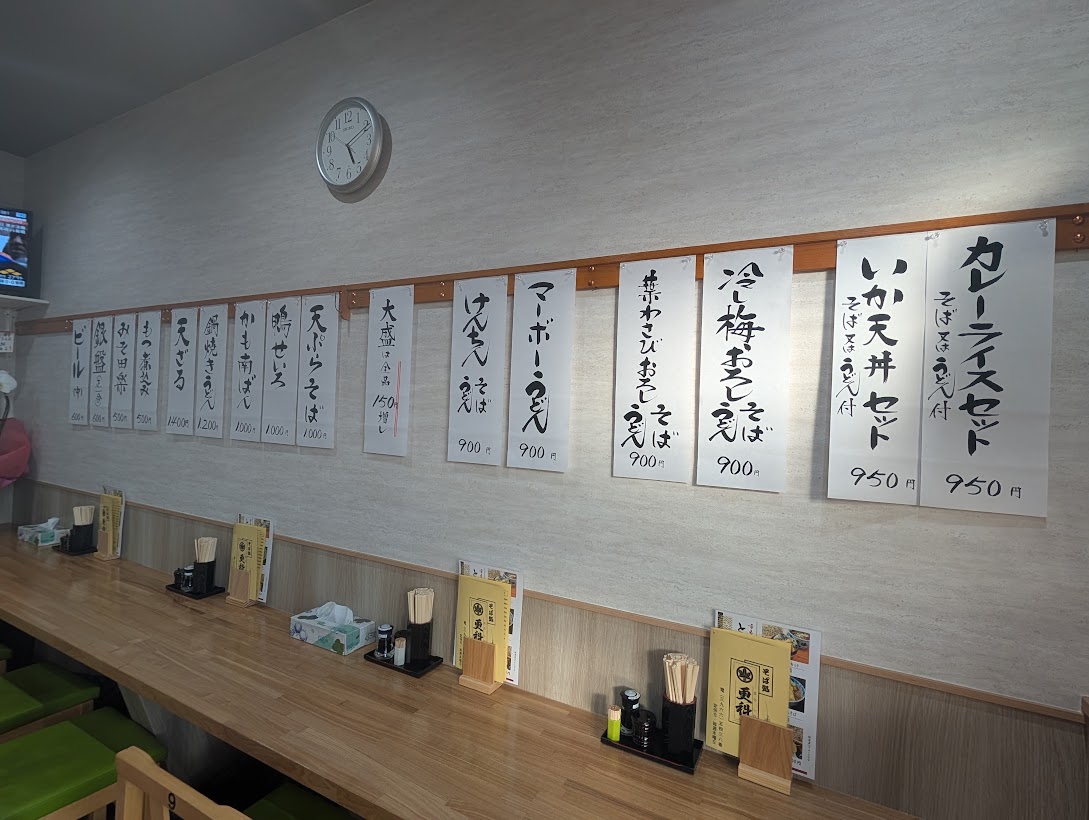 カレーライスセット
そば又はうどん付
950円
いか天丼セット
そば又はうどん付
950円
冷し梅おろしそばうどん
900円
葉わさびおろしそばうどん
900円
マーボーうどん
900円
けんちんそばうどん
900円
大盛は全品150円増し
天ぷらそば
1000円
鴨せいろ
1000円
かも南ばん
1000円
鍋焼きうどん
1200円
天ざる
1400円
もつ煮込み
500円
みそ田楽
500円
銀盤
ビール(中)
600円
SEIKO
12
1
2
3
4
5
6
7
8
9
10
11
そば処
更科
そば処
更科
そば処
更科
9